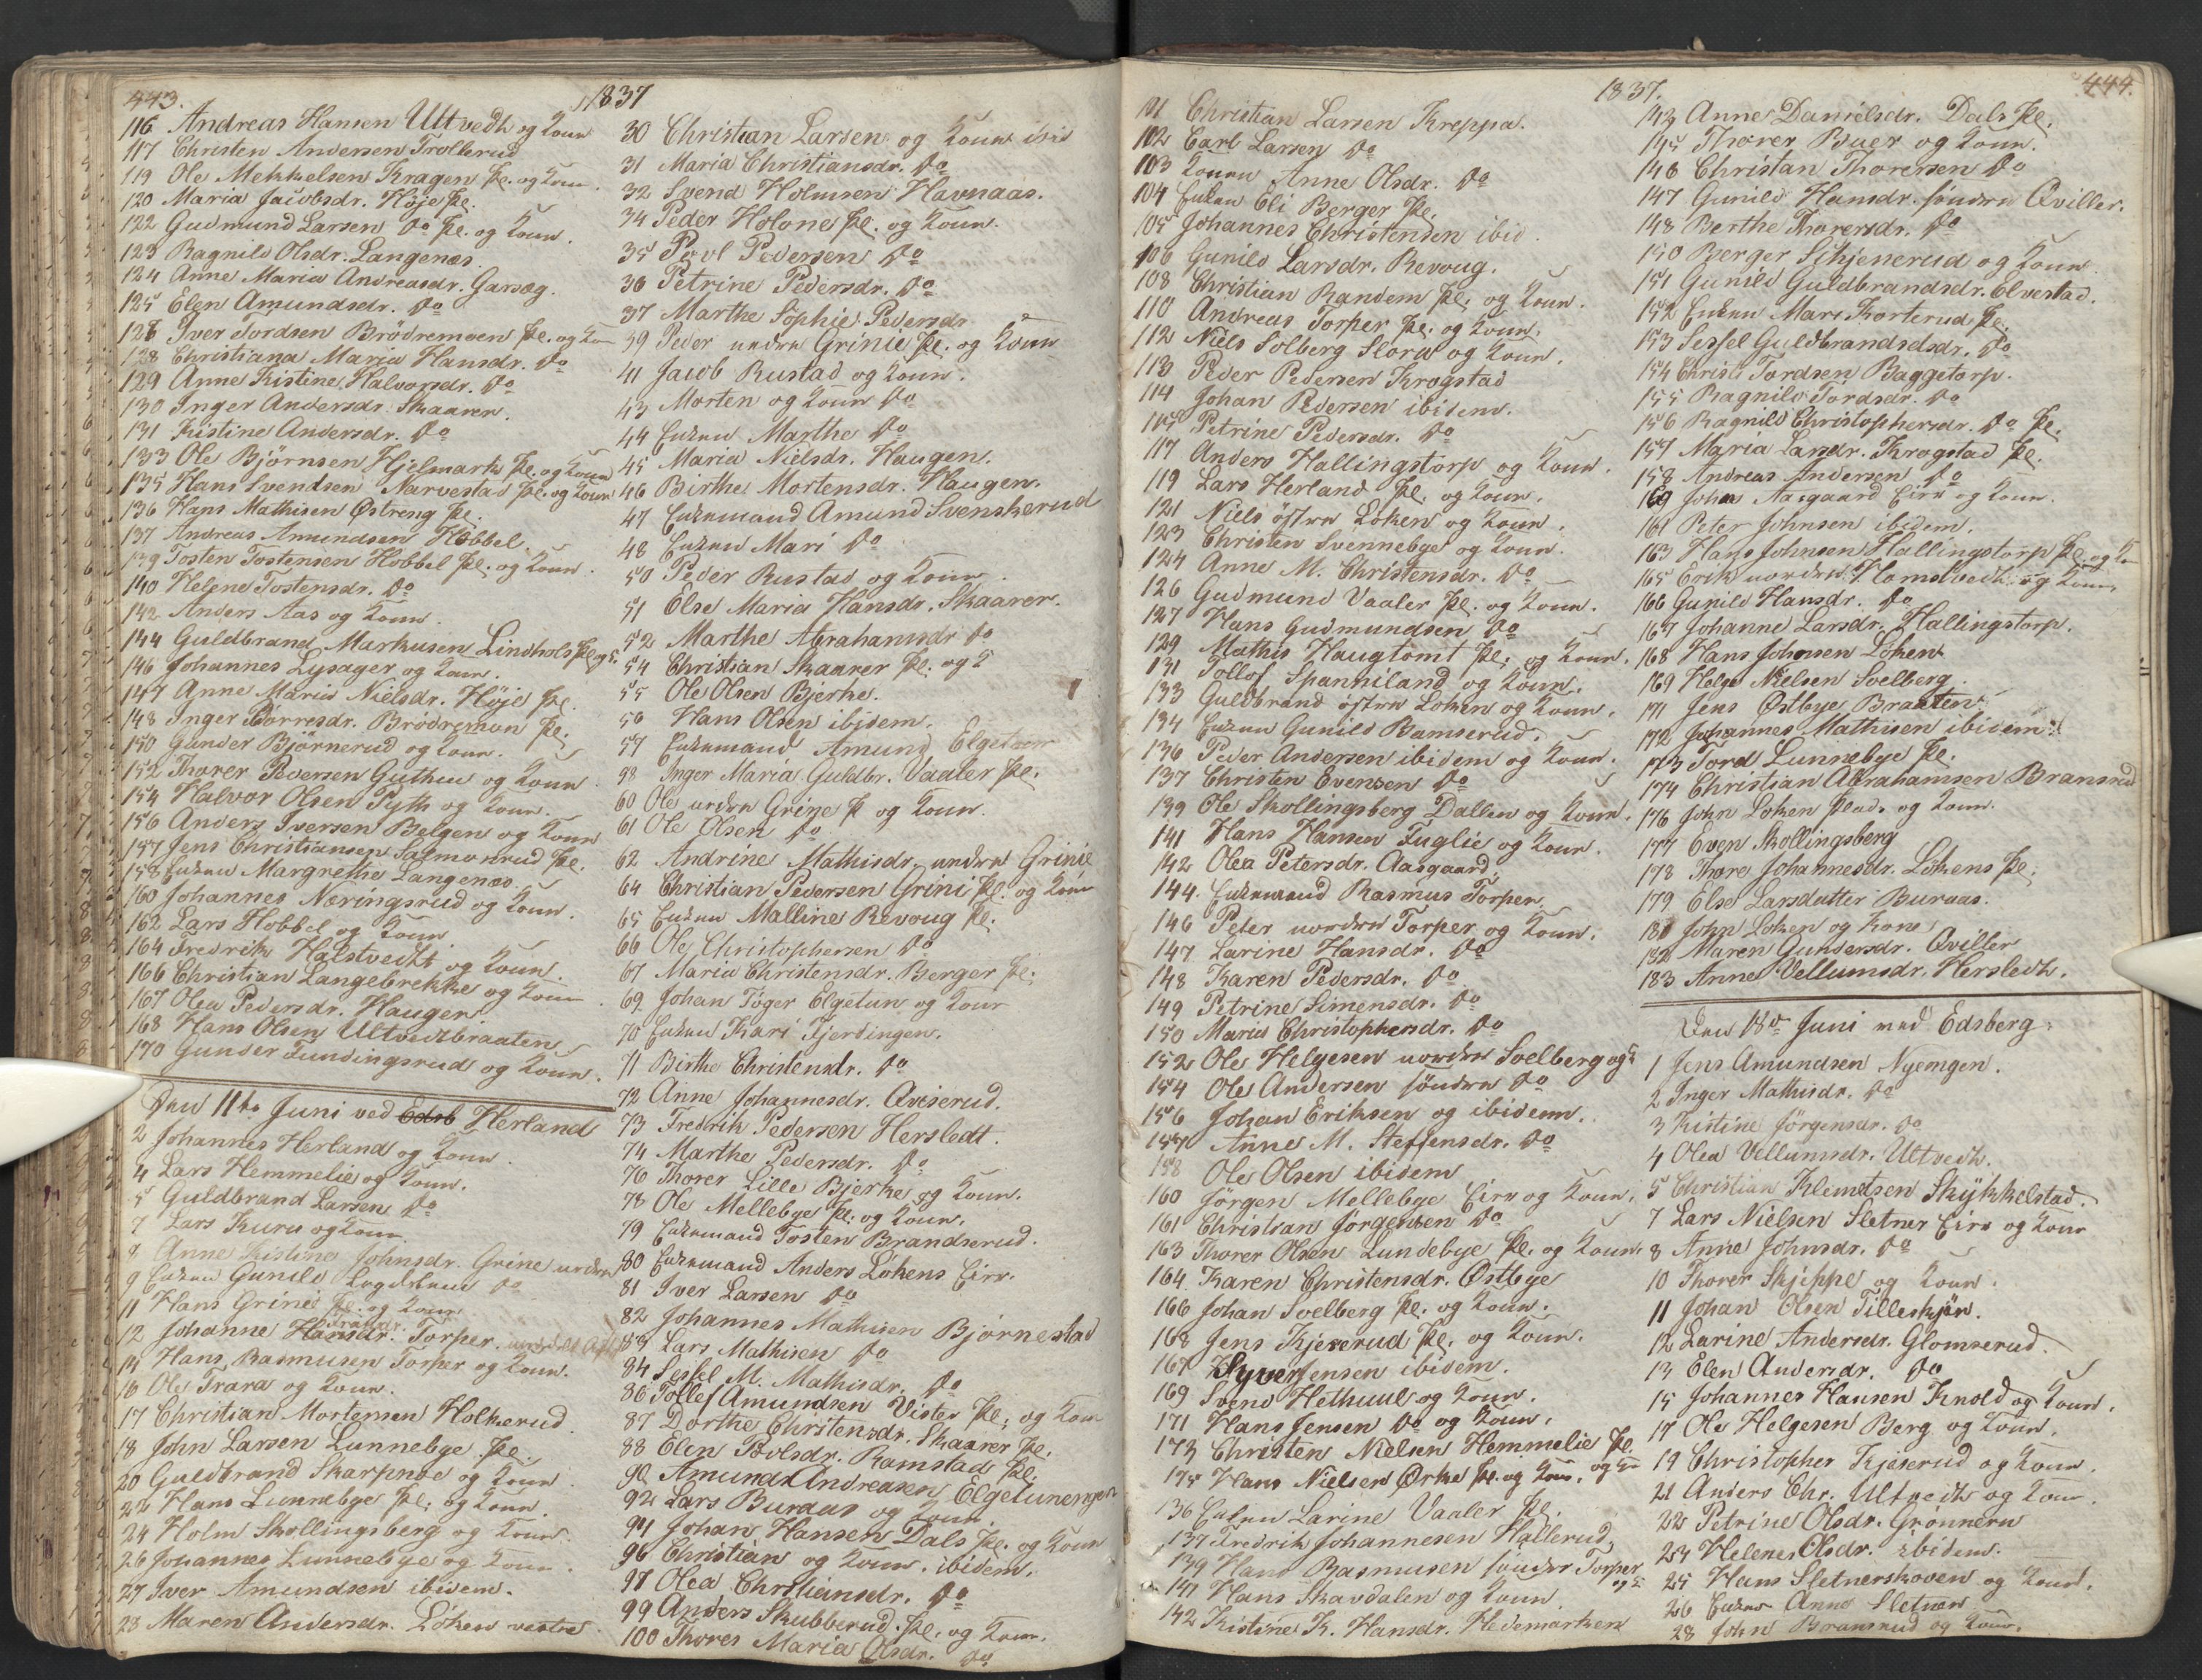 443.
1837
116 Andreas Hansen Ultvedt og Kone
117 Christen Andersen Trollerud
119 Ole Mekkelsen Kragen Pl. og Kone.
120 Maria Jacobsdr. Høje Pl.
122 Gudmund Larsen Do Pl. og Kone.
123 Ragnild Olsdr. Langenæs.
124 Anne Maria Andreasdr. Garsæg.
125 Elen Amundsdr. Do
126 Iver Tordsen Brödremoen Pl. og Kone
128 Christiana Maria Hansdr. Do
129 Anne Kistine Halvorsdr. Do
130 Inger Andersdr. Skaaren.
131 Kistine Andersdr. Do
133 Ole Björnsen Hjelmark Pl. og Kone
135 Hans Svendsen Narvestad Pl. og Kone
136 Hans Mathisen Østreng Pl.
137 Andreas Amundsen Hobbel
139 Tosten Tostensen Hobbel Pl. og Kone.
140 Helene Tostensdr. Do
142 Anders Aas og Kone.
144 Guldbrand Markusen Lindhols Pl. og K.
146 Johannes Lysager og Kone.
147 Anne Maria Nielsdr. Höje Pl.
148 Inger Borresdr. Brödremon Pl.
150 Gunder Björnerud og Kone.
152 Thorer Pedersen Guthu og Kone
154 Halvor Olsen Pyth og Kone.
156 Anders Iversen Belgen og Kone
157 Jens Christiansen Salmonrud Pl.
158 Enken Margrethe Langenæs.
160 Johannes Næringsrud og Kone.
162 Lars Hobbel og Kone
164 Fredrik Halstvedt og Kone.
166 Christian Langebrekke og Kone.
167 Olea Pedersdr. Haugen
168 Hans Olsen Ultvedtbraaten
170 Gunder Fundingsrud og Kone.
Den 11te Juni ved Edsb Herland
2 Johannes Herland og Kone.
4 Lars Hemmelie og Kone.
5 Guldbrand Larsen Do
7 Lars Kuru og Kone
8 Anne Kistine Johnsdr. Grine nedre
9 Enken Gunild Do
11 Hans Grinie Pl. og Kone
12 Johanne Hansdr. Torper
14 Hans Rasmusen Torper og Kone.
16 Ole Trara og Kone.
17 Christian Mortensen Holkerud
18 John Larsen Lunnebye Pl.
20 Guldbrand Skarpnoe og Kone
22 Hans Lunnebye Pl. og Kone.
24 Holm Skollingsberg og Kone.
26 Johannes Lunnebye og Kone.
27 Iver Amundsen ibidem.
28 Maren Andersdr. Löken vestre
30 Christian Larsen og Kone ibid
31 Maria Christiansdr. Do
32 Svend Holmsen Havnaas.
34 Peder Holone Pl. og Kone.
35 Povl Pedersen Do
36 Petrine Pedersdr. Do
37 Marthe Sophie Pedersdr Do
39 Peder nedre Grinie Pl. og Kone
41 Jacob Rustad og Kone.
43 Morten og Kone Do
44 Enken Marthe Do
45 Maria Nielsdr. Haugen.
46 Birthe Mortensdr. Haugen.
47 Enkemand Amund Svenskerud
48 Enken Mari Do
50 Peder Rustad og Kone.
51 Else Maria Hansdr. Skaarer.
52 Marthe Abrahamsdr Do
54 Christian Skaarer Pl. og K
55 Ole Olsen Bjerke.
56 Hans Olsen ibidem.
57 Enkemand Amund Elgetun
58 Inger Maria Guldbr. Vaaler Pl.
60 Ole nedre Grine Pl og Kone.
61 Ole Olsen Do
62 Andrine Mathisdr. nedre Grinie
64 Christian Pedersen Grini Pl. og Kone
65 Enken Malline Revoug Pl.
66 Ole Christophersen Do
67 Maria Christensdr. Berger Pl.
69 Johan Töger Elgetun og Kone
70 Enken Kari Fjerdingen.
71 Birthe Christensdr. Do
72 Anne Johannesdr. Aviserud.
73 Fredrik Pedersen Hersledt.
74 Marthe Pedersdr. Do
76 Thorer Lille Bjerke og Kone.
78 Ole Mellebye Pl. og Kone.
79 Enkemand Tosten Brandserud.
80 Enkemand Anders Lökens Eier.
81 Iver Larsen Do
82 Johannes Mathisen Björnestad
83 Lars Mathisen Do
84 Sessel M. Mathisdr. Do
86 Tollef Amundsen Vister Pl. og Kone
87 Dorthe Christensdr. Skaarer Pl.
88 Elen Povlsdr. Ramstad Pl.
90 Amund Andreasen Elgetunengen
92 Lars Buraas og Kone.
94 Johan Hansen Dals Pl. og Kone
96 Christian og Kone. ibidem.
97 Olea Christiansdr. Do
99 Anders Skubberud Pl. og Kone.
100 Thore Maria Olsdr. Do
1837.
444.
101 Christian Larsen Kreppa.
102 Carl Larsen Do
103 Konen Anne Olsdr. Do
104 Enken Eli Berger Pl.
105 Johannes Christensen ibid.
106 Gunild Larsdr. Revoug.
108 Christian Randem Pl. og Kone.
110 Andreas Torper Pl. og Kone.
112 Niels Solberg Slora og Kone.
113 Peder Pedersen Krogstad
114 Johan Pedersen ibidem.
115 Petrine Pedersdr. Do
117 Anders Hallingstorp og Kone.
119 Lars Herland Pl. og Kone.
121 Niels östre Löken og Kone.
123 Christen Svennebye og Kone.
124 Anne M. Christensdr. Do
126 Gudmund Vaaler Pl. og Kone.
127 Hans Gudmundsen Do
129 Mathis Haugtomt Pl. og Kone.
131 Tollof Spanniland og Kone.
133 Guldbrand östre Löken og Kone.
134 Enken Gunild Ramserud.
136 Peder Andersen ibidem og Kone.
137 Christen Evensen Do
139 Ole Skollingsberg Dallen og Kone.
141 Hans Hansen Fuglie og Kone.
142 Olea Petersdr. Aasgaard.
144. Enkemand Rasmus Torper.
146 Peter nordre Torper og Kone.
147 Larine Hansdr. Do
148 Karen Pedersdr. Do
149 Petrine Simensdr. Do
150 Maria Christophersdr. Do
152 Ole Helgesen nordre Solberg og K
154 Ole Andersen söndre Do
156 Johan Eriksen og ibidem.
157 Anne M. Steffensdr. Do
158 Ole Olsen ibidem
160 Jörgen Mellebye Eier og Kone.
161 Christian Jörgensen Do
163 Thorer Olsen Lundebye Pl. og Kone
164 Karen Christensdr. Østbye
166 Johan Solberg Pl. og Kone.
168 Jens Kjeserud Pl. og Kone.
167 Syver Jensen ibidem.
169 Svend Hethuul og Kone.
171 Hans Jensen Do og Kone.
173 Christen Nielsen Hemmelie Pl. og K
175 Hans Nielsen Ørke Pl. og Kone.
136 Enken Larine Vaaler Pl.
137 Fredrik Johannesen Hallerud,
139 Hans Rasmusen söndre Torper og K
141 Hans Skavdalen og Kone.
142 Kistine K. Hansdr. Hedemarken
143 Anne Danielsdr. Dals Pl.
145 Thorer Buer og Kone.
146 Christian Thorersen Do
147 Gunild Hansdr. söndre Qviller.
148 Berthe Thorersdr. Do
150 Berger Skjenerud og Kone.
151 Gunild Guldbrandsdr. Elvestad.
152 Enken Mari Korterud Pl.
153 Sessel Guldbrandsdsdr. Do
154 Christ. Tordsen Baggetorp.
155 Ragnild Tordsdr. Do
156 Ragnild Christophersdr. Do Pl.
157 Maria Larsdr. Krogstad Pl.
158 Andreas Andersen Do
160 Johns Aasgaard Eier og Kone.
161 Peter Johnsen ibidem.
163 Hans Johnsen Hallingstorp Pl. og Kone
165 Erik nordre Homstvedt og Kone.
166 Gunild Hansdr. Do
167 Johanne Larsdr. Hallingstorp.
168 Hans Johnsen Löken
169 Helge Nielsen Solberg.
171 Jens Østbye Braaten
172 Johannes Mathisen ibidem
173 Tord Lunnebye Pl.
174 Christian Abrahamsen Bransrud
176 John Löken Plads og Kone.
177 Even Skollingsberg
178 Thore Johannesdr. Lökens Pl.
179 Else Larsdatter Buraas.
181 John Löken og Kone
182 Maren Gundersdr. Qviller
183 Anne Vellumsdr. Hersledt.
Den 18de Juni ved Edsberg.
1 Jens Amundsen Nyemgen.
2 Inger Mathisdr. Do
3 Kistine Jörgensdr. Do
4 Olea Vellumsdr. Ultvedt.
5 Christian Klemetsen Skÿkkelstad.
7 Lars Nielsen Sletner Eier og Kone
8 Anne Johnsdr. Do
10 Thorer Skjeppe og Kone.
11 Johan Olsen Tilleskjør.
12 Larine Andersdr. Glomserud.
13 Elen Andersdr. Do
15 Johannes Hansen Knold og Kone.
17 Ole Helgesen Berg og Kone.
19 Christopher Kjeserud og Kone.
21 Anders Chr. Ultvedt og Kone.
22 Petrine Olsdr. Grønnern
23 Helene Olsdr. ibidem.
25 Hans Sletnerskoven og Kone.
26 Enken Anne Sletner
28 John Bransrud og Kone.